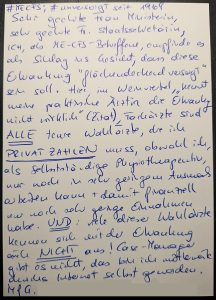 #MECFS, #unversorgt seit 1969
Sehr geehrte Frau Ministerin,
sehr geehrte Fr. Staatssekretärin,
ICH, als ME-CFS-Betroffene, empfinde es
als Schlag ins Gesicht, dass diese
Erkrankung "flächendeckend versorgt"
sein soll. Hier, im Weinviertel, "kennt
meine praktische Ärztin die Erkrankung
nicht wirklich" (Zitat), Fachärzte sind
ALLE teure Wahlärzte, die ich
PRIVAT ZAHLEN muss, obwohl ich,
als selbstständige Physiotherapeutin,
nur noch in sehr geringem Ausmaß
arbeiten kann + damit finanziell
nur noch sehr geringe Einnahmen
habe. UND: Alle diese Wahlärzte
kennen sich mit der Erkrankung
auch NICHT aus! Case-Manager
gibt es nicht, das bin ich mittlerweile
Internet selbst geworden.
MfG.